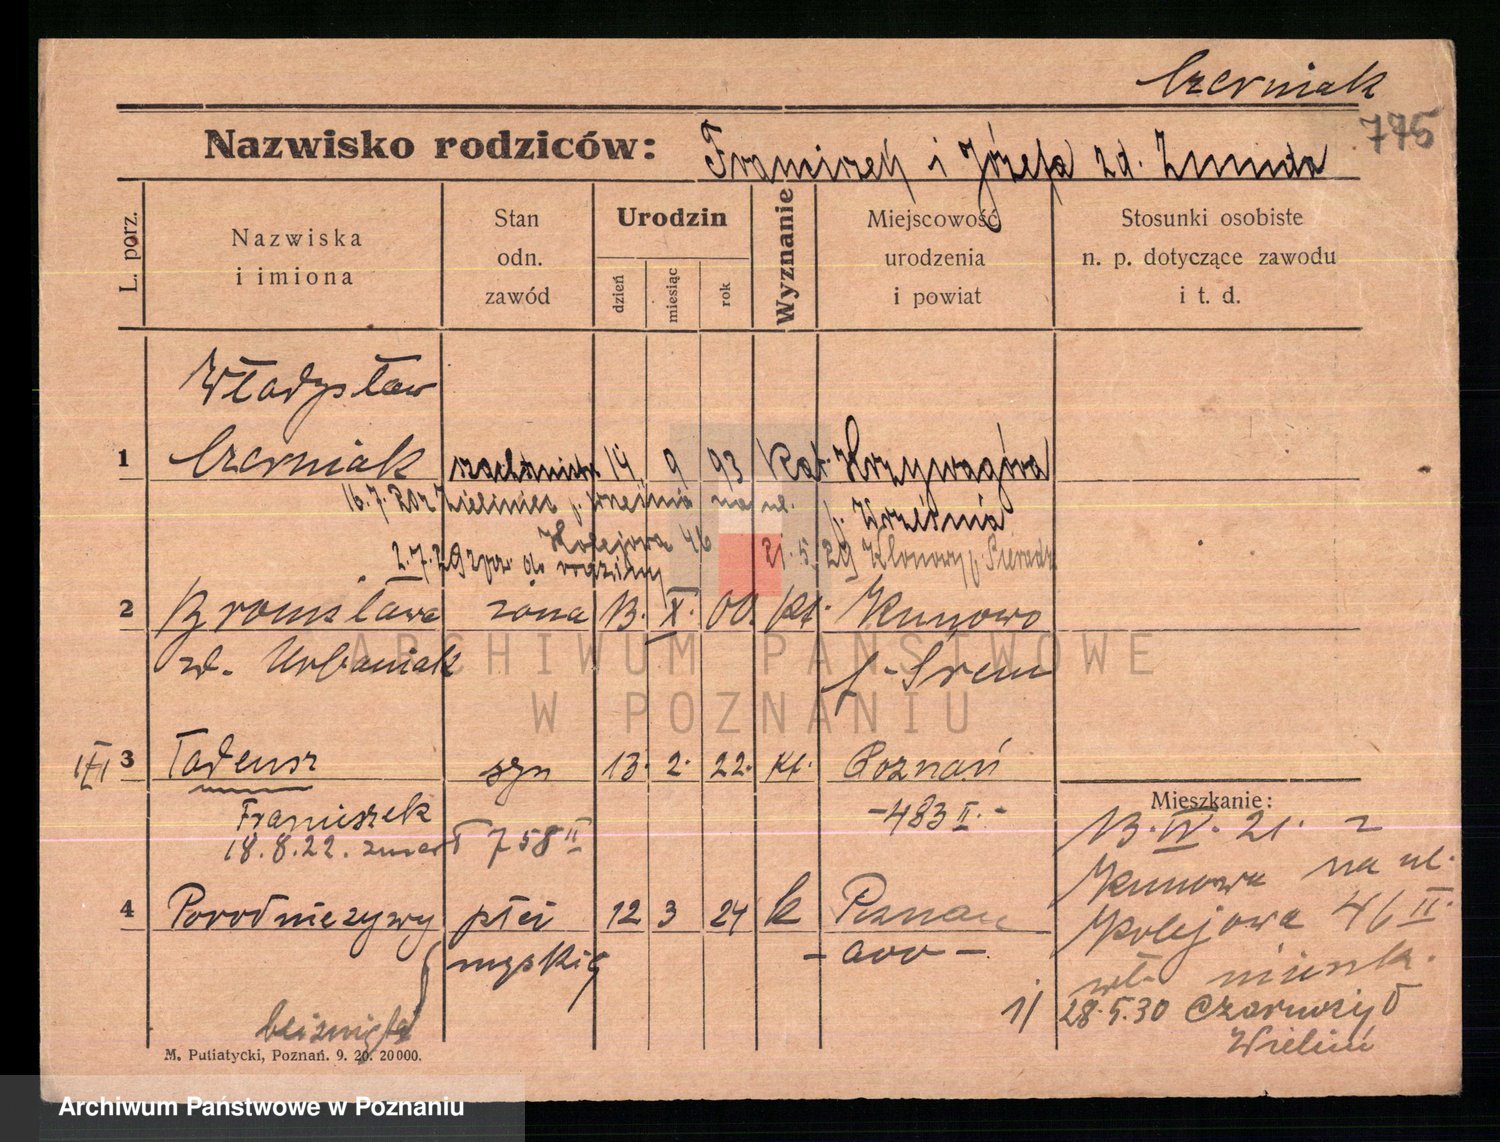 Czerniak
775
Nazwisko rodziców: Franciszek i Józefa zd. Zmuda
L. porz.
Nazwiska i imiona
Stan odn. zawód
Urodzin
dzień
miesiąc
rok
Wyznanie
Miejscowość urodzenia i powiat
Stosunki osobiste n. p. dotyczące zawodu i t. d.
Władysław
1 Czerniak 14 9 93 Kat. Krzywagóra
16.7.20 z Zieliniec p. Września na ul. p. Września
Kolejowa 46 21.5.29 Klonowy p. Sieradz
2.7.29 do rodziny
2 Bronisława żona 13. X. 00. Kt. Kunowo
zd. Urbaniak p. Śrem
3 Tadeusz syn 13. 2. 22. kt. Poznań
Franciszek - 483 II. -
18.8.22. 758 II
Mieszkanie:
13. IV. 21. z
Kunowa na ul.
Kolejowa 46 II.
4 Poród nieżywy płci 12 3 24 k Poznań
męskiej
bliźnięta
1/ 28.5.30
Wieluń
M. Putiatycki, Poznań. 9. 20. 20000.
ARCHIWUM PAŃSTWOWE
W POZNANIU
Archiwum Państwowe w Poznaniu